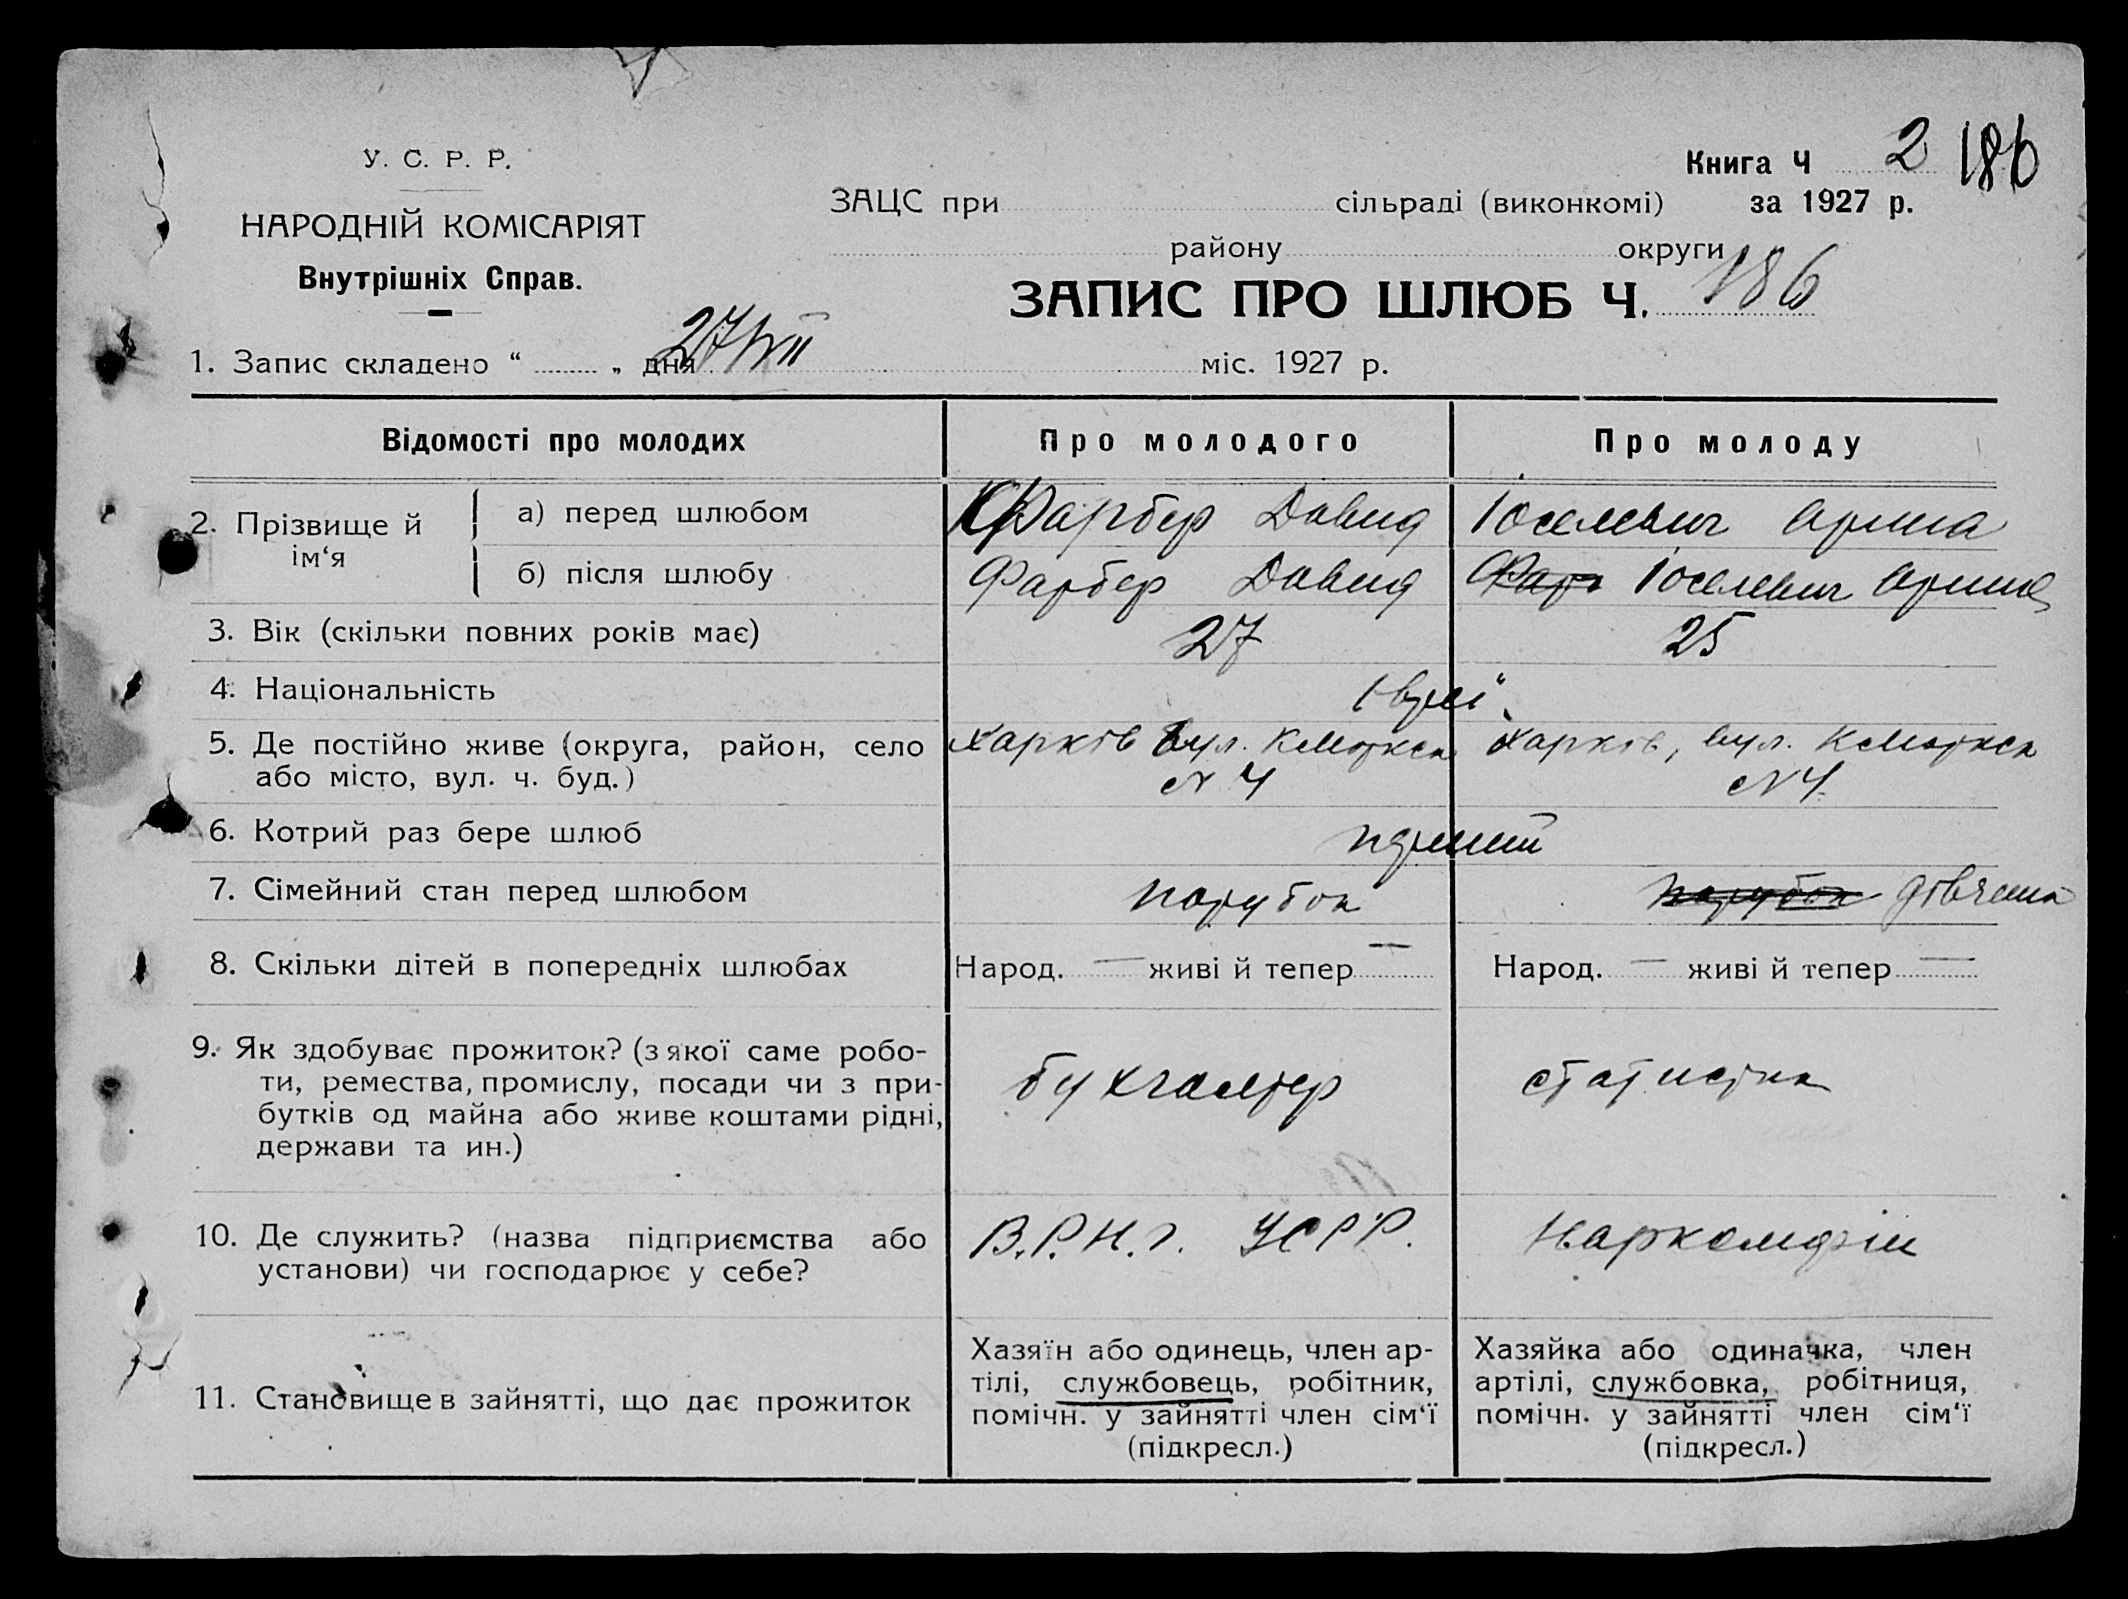 Книга Ч 2 186
У. С. Р. Р.
ЗАЦС при сільраді (виконкомі) за 1927 р.
НАРОДНІЙ КОМІСАРІЯТ
району округи
Внутрішніх Справ.
ЗАПИС ПРО ШЛЮБ Ч. 186
1. Запис складено “ „ дня 27/VII міс. 1927 р.
Відомості про молодих Про молодого Про молоду
2. Прізвище й ім‘я а) перед шлюбом Фарбер Давид Іоселевич Арина
б) після шлюбу Фарбер Давид Фар Іоселевич Арина
3. Вік (скільки повних років має) 27 25
4. Національність Євреї
5. Де постійно живе (округа, район, село Харків вул. К Маркса Харків, вул. К Маркса
або місто, вул. ч. буд.) N 4 N 4
6. Котрий раз бере шлюб перший
7. Сімейний стан перед шлюбом парубок парубок дівчина
8. Скільки дітей в попередніх шлюбах Народ. — живі й тепер — Народ. — живі й тепер —
9. Як здобуває прожиток? (з якої саме робо-
ти, ремества, промислу, посади чи з при- бухгалтер статистик
бутків од майна або живе коштами рідні,
держави та ин.)
10. Де служить? (назва підприємства або В.Р.Н.Г. УСРР. Наркомфін
установи) чи господарює у себе?
11. Становище в зайнятті, що дає прожиток
Хазяїн або одинець, член ар-
тілі, службовець, робітник,
помічн. у зайнятті член сім‘ї
(підкресл.)
Хазяйка або одиначка, член
артілі, службовка, робітниця,
помічн. у зайнятті член сім‘ї
(підкресл.)